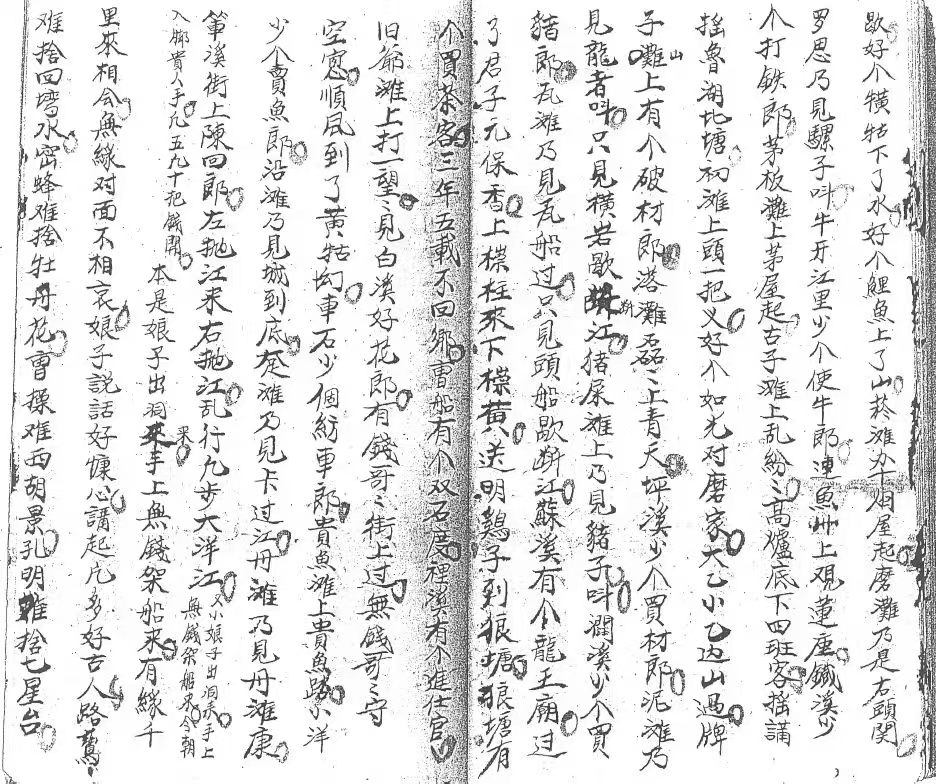 歇好个犢牯下了水好个鯉魚上了山菸滩办下烟屋起磨滩乃是右頭関
罗思乃見騾子呌牛牙江里少个使牛郎連魚州上观蓮座鐵溪少
个打鉄郎茅板灘上茅屋起古子滩上乱紛〻高爐底下四班客摇講
摇魯湖圠塘初滩上頭一把义好个如光对磨家大乙小乙边山過牌
子灘山上有个破材郎落灘磊〻上青天坪溪少个買材郎泥滩乃
見龍者呌只見横岩歇断江猪屎滩上乃見豬子呌潤溪少个買
豬郎瓦滩乃見瓦船过只見頭船歇断江蘇溪有个龍王廟过
了君子元保香上檪柱來下檪黄送明鷄子到狼塘狼塘有
个買茶客三年五載不回鄉曹船有个双石度裡溪有个進仕官
旧爺滩上打一望〻見白溪好花郎有錢哥〻街上过無錢哥〻守
空窓順风到了黄牯幻車石少個紡車郎貴魚滩上貴魚路小洋
少个賣魚郎沿滩乃見城到底在滩乃見卡过江丹滩乃見丹滩康
箄溪街上陳回郎左抛江来右抛江乱行九步大洋江小娘子出洞来手上
無錢架船來今朝
入郷貴人手九五九十把錢開本是娘子出洞來手上無錢架船來有緣千
里來相会無緣对面不相哀娘子説話好慷心講起几多好古人路鶩
难捨回塆水密蜂难捨牡丹花曹操难西胡景孔明难捨七星台